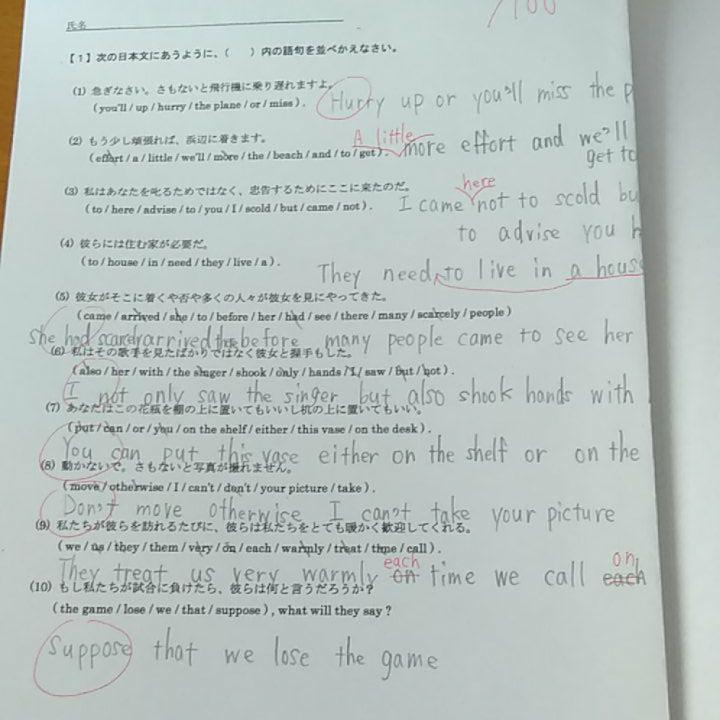 /100
氏名
【1】次の日本文にあうように、（　）内の語句を並べかえなさい。
(1) 急ぎなさい。さもないと飛行機に乗り遅れますよ。
(you'll / up / hurry / the plane / or / miss) .
Hurry up or you'll miss the p
(2) もう少し頑張れば、浜辺に着きます。
(effort / a / little / we'll / more / the / beach / and / to / get) .
A little more effort and we'll
get to
(3) 私はあなたを叱るためではなく、忠告するためにここに来たのだ。
(to / here / advise / to / you / I / scold / but / came / not) .
here
I came not to scold bu
to advise you h
(4) 彼らには住む家が必要だ。
(to / house / in / need / they / live / a) .
They need to live in a house
(5) 彼女がそこに着くや否や多くの人々が彼女を見にやってきた。
(came / arrived / she / to / before / her / had / see / there / many / scarcely / people)
She had scarcely arrived there before many people came to see her
(6) 私はその歌手を見たばかりではなく彼女と握手もした。
(also / her / with / the singer / shook / only / hands / I / saw / but / not) .
I not only saw the singer but also shook hands with
(7) あなたはこの花瓶を棚の上に置いてもいいし机の上に置いてもいい。
(put / can / or / you / on the shelf / either / this vase / on the desk) .
You can put this vase either on the shelf or on the
(8) 動かないで。さもないと写真が撮れません。
(move / otherwise / I / can't / don't / your picture / take) .
Don't move otherwise I can't take your picture
(9) 私たちが彼らを訪れるたびに、彼らは私たちをとても暖かく歓迎してくれる。
(we / us / they / them / very / on / each / warmly / treat / time / call) .
each on
They treat us very warmly on time we call each
(10) もし私たちが試合に負けたら、彼らは何と言うだろうか？
(the game / lose / we / that / suppose) , what will they say ?
Suppose that we lose the game